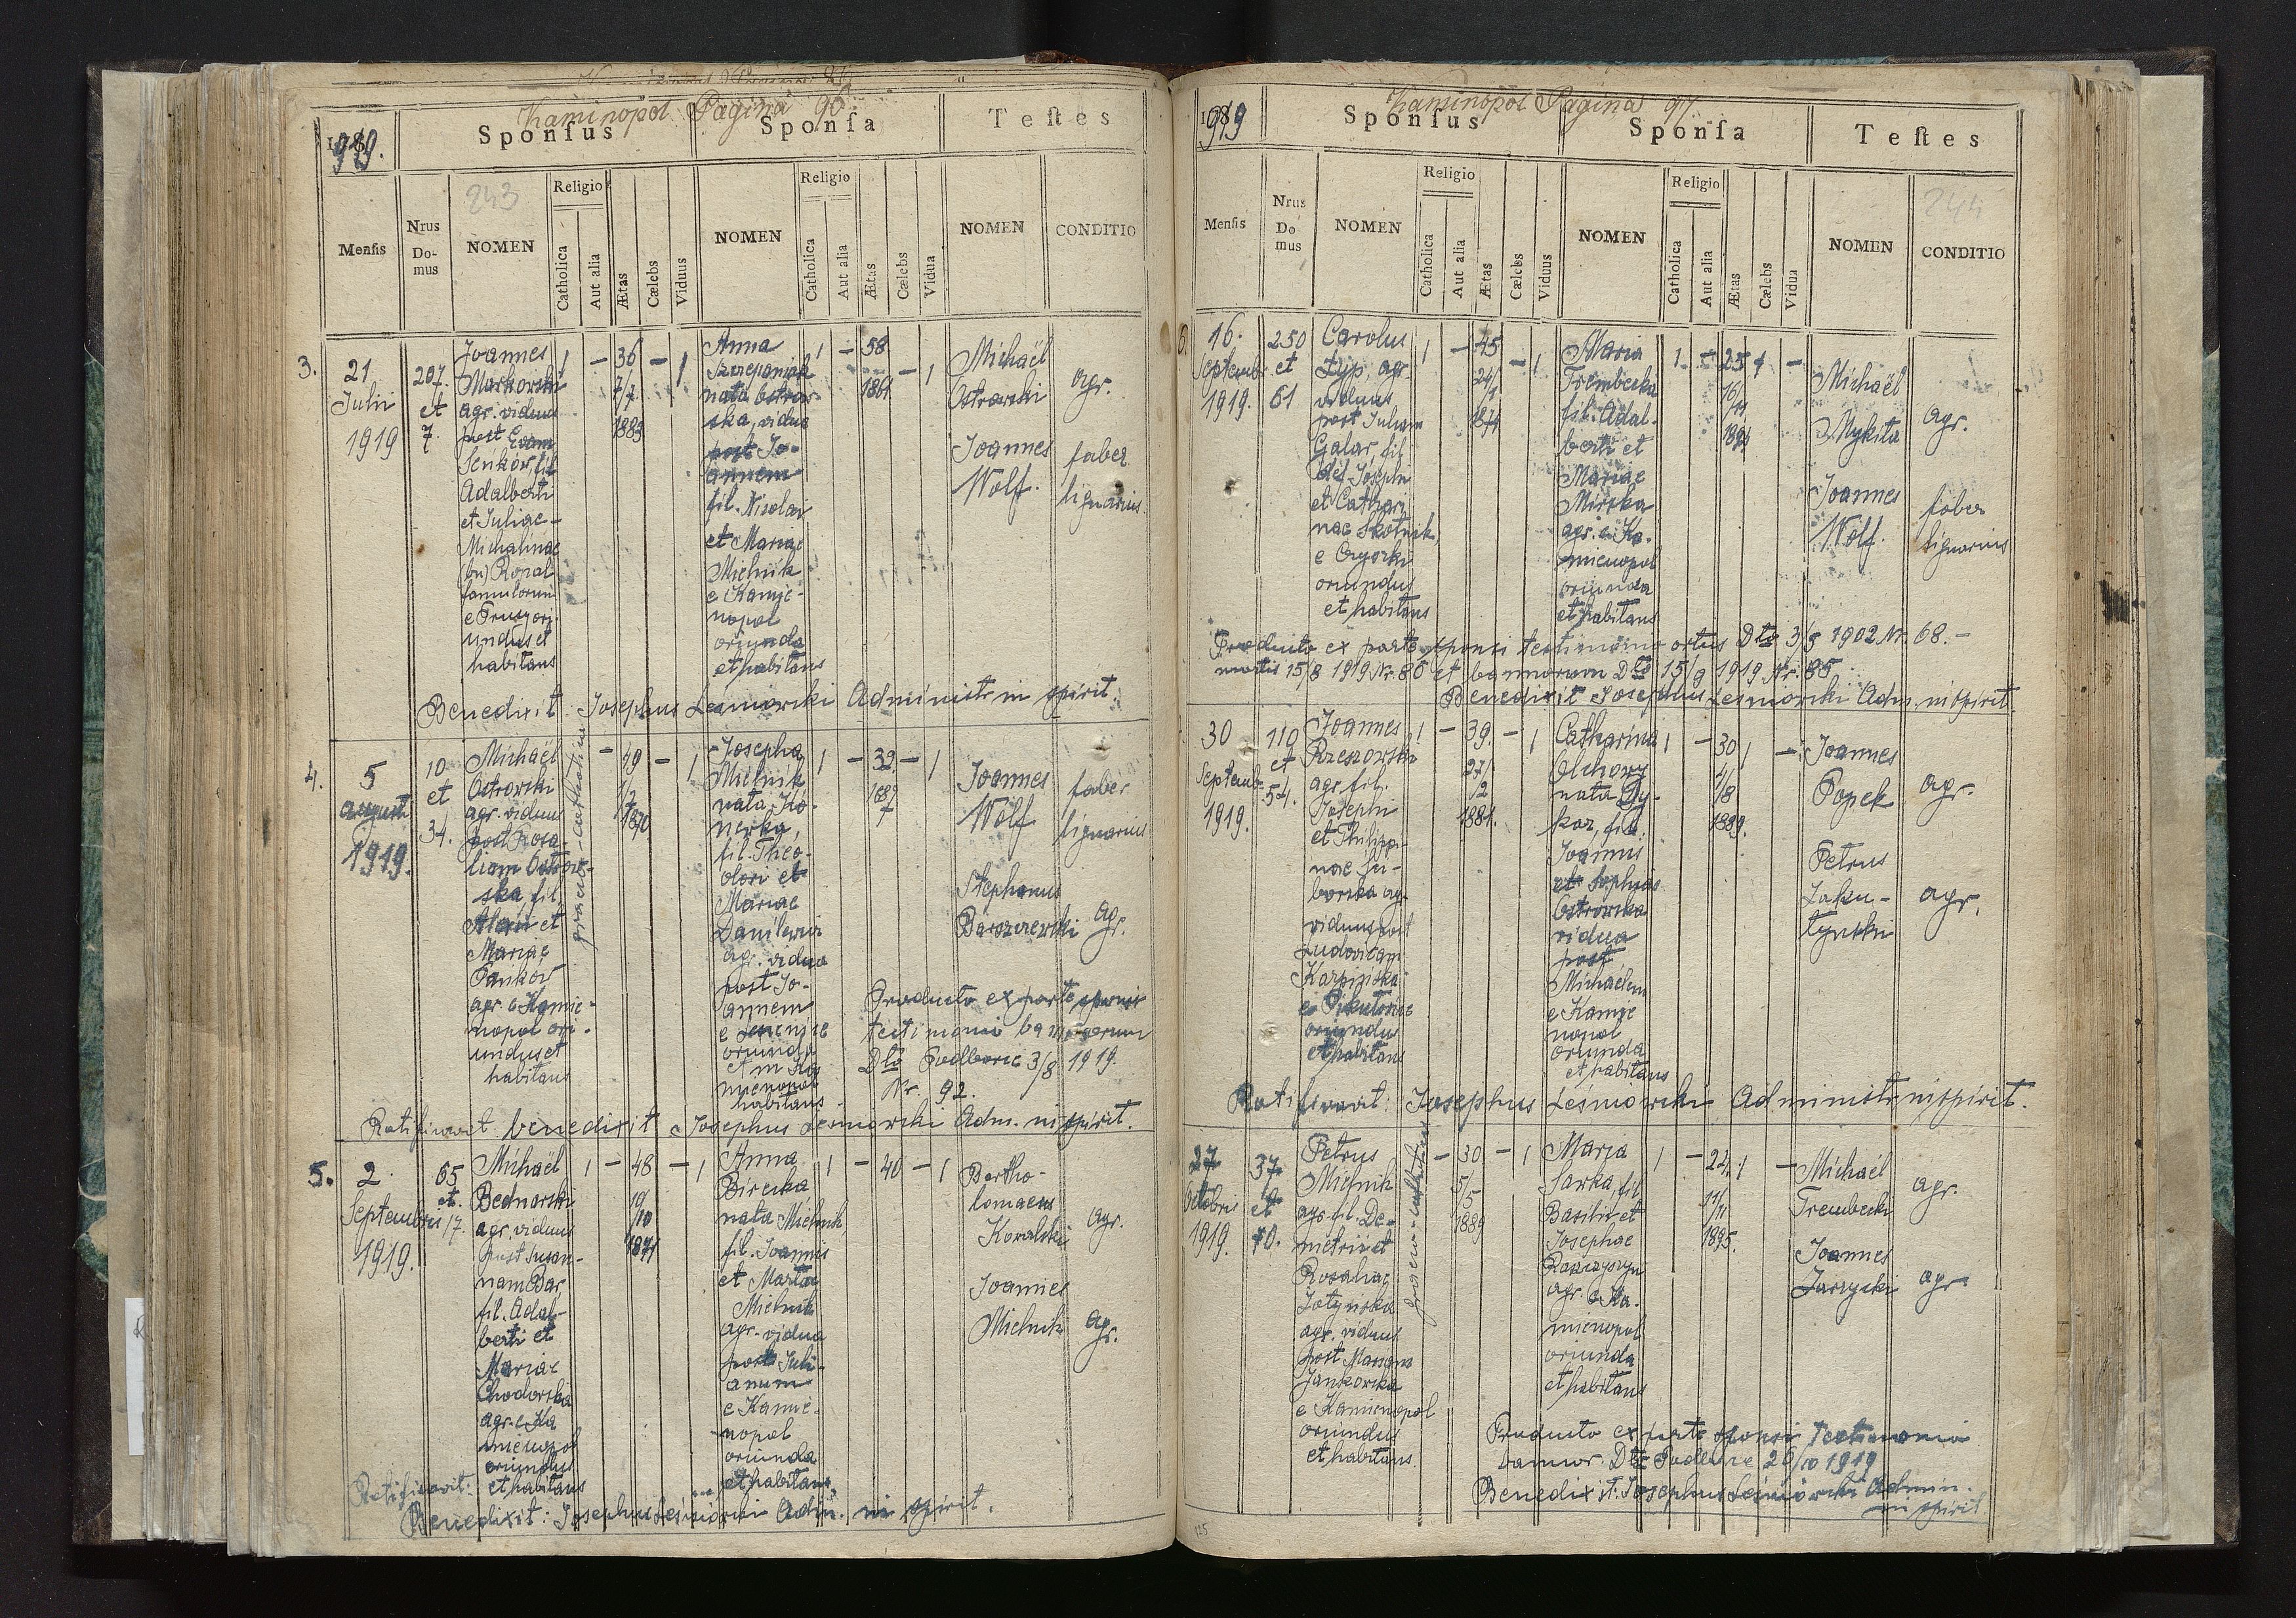 Kaminopol Pagina 96.
1919.
Sponſus
Sponſa
Teſtes
Menſis
Nrus Do-mus
243
NOMEN
Religio
Catholica
Aut alia
Ætas
Cælebs
Viduus
NOMEN
Religio
Catholica
Aut alia
Ætas
Cælebs
Vidua
NOMEN
CONDITIO
3.
21
Julii
1919
207.
et
7.
Joannes
Markowski
agr. viduus
post
Senków, fil.
Adalberti
et Juliae
Michalinae
(bn) Kopal
famulorum
e Prusy ori-
undus et
habitans
1 — 36 — 1
7/7
1883
Anna
Szczepaniak
nata Ostrow-
ska, vidua
post Jo-
annem
fil. Nicolai
et Mariae
Mielnik
e Kamie-
nopol
oriunda
et habitans
1 — 58 — 1
1861
Michaël
Ostrowski
agr.
Joannes
Wolf.
faber
lignarius
Benedixit: Josephus Leśniowski Administr. in spirit.
4.
5
August
1919.
10
et
34.
Michaël
Ostrowski
agr. viduus
post Rosa-
liam Ostrow-
ska, fil.
et
Mariae
Pańków
agr. e Kamie-
nopol ori-
undus et
habitans
graeco-catholica
— 49 — 1
1870
Josepha
Mielnik
nata Ko-
nerka,
fil. Theo-
dori et
Mariae
Danilewicz
agr. vidua
post Jo-
annem
e
oriunda
et in Ka-
mienopol
habitans
1 — 32 — 1
Joannes
Wolf
faber
lignarius
Stephanus
Barszczewski
agr.
Producto ex parte sponsi
testimonio bannorum
Dto Podborce 3/8 1919.
Nr. 92.
Ratificavit benedixit Josephus Leśniowski Adm. in spirit.
5.
2
Septembris
1919.
65
et
17.
Michaël
Bednarski
agr. viduus
post Susan-
nam Bar,
fil. Adal-
berti et
Mariae
Chodorska
agr. e Ka
mienopol
oriundus
et habitans
1 — 48 — 1
19/10
1871
Anna
Birecka
nata Mielnik,
fil. Joannis
et Martae
Mielnik
agr. vidua
post Juli-
anum
e Kamie-
nopol
oriunda
et habitans
1 — 40 — 1
Bartho-
lomaeus
Kowalski
agr.
Joannes
Mielnik
agr.
Ratificavit:
Benedixit: Josephus Leśniowski Adm. in spirit.
Kaminopol Pagina 97.
1919
Sponſus
Sponſa
Teſtes
Menſis
Nrus Do mus
NOMEN
Religio
Catholica
Aut alia
Ætas
Cælebs
Viduus
NOMEN
Religio
Catholica
Aut alia
Ætas
Cælebs
Vidua
NOMEN
244
CONDITIO
6.
16.
Septembr
1919.
250
et
61
Carolus
Zyp, agr.
viduus
post Juliam
Galar, fil.
def. Josephi
et Cathari
nae Skotnik,
e
oriundus
et habitans
1 — 45 — 1
24/1
1874
Maria
Trembecka
fil. Adal-
berti et
Mariae
Mirska
agr. e Ka-
mienopol
oriunda
et habitans
1 — 25 1 —
16/11
1894
Michaël
Mykita
agr.
Joannes
Wolf.
faber
lignarius
Producto ex parte sponsi testimonio ortus Dto 3/8 1902 Nr. 68. —
mortis 15/8 1919 Nr. 86 et bannorum Dto 15/9 1919 Nr. 85
Benedixit Josephus Leśniowski Adm. in spirit.
30
Septemb.
1919.
110
et
54.
Joannes
Rzeszowski
agr. fil.
Josephi
et Philippi-
nae Ja-
worska agr.
viduus post
Ludovicam
Karpińska
e Pikułowice
oriundus
et habitans
1 — 39. — 1
27/2
1881.
Catharina
Olchowy
nata Dy-
kaz, fil.
Joannis
et Sophiae
Ostrowska
vidua
post
Michaëlem
e Kamie
nopol
oriunda
et habitans
1 — 30 1 —
1/8
1889.
Joannes
Popek
agr.
Petrus
Zaku-
tyński
agr.
Ratificavit: Josephus Leśniowski Administr. in spirit.
27
Octobris
1919.
37
et
70.
Petrus
Mielnik
agr. fil. De-
metrii et
Rosaliae
Jotyńska
agr. viduus
post Mariam
Jankowska
e Kamienopol
oriundus
et habitans.
graeco-catholica
— 30 — 1
5/5
1889
Maria
Sarka, fil.
Basilii et
Josephae
agr. e Ka-
mienopol
oriunda
et habitans
1 — 24 1 —
11/11
1895.
Michaël
Trembecki
agr.
Joannes
Zarzycki
agr.
Producto ex parte sponsi testimonio
bannor. Dto Podborce 26/10 1919
Benedixit: Josephus Leśniowski Admin.
in spirit.
125